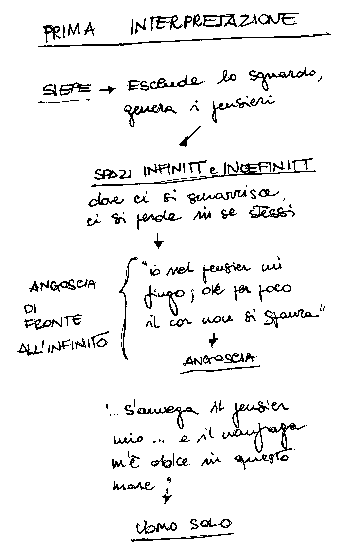 PRIMA INTERPRETAZIONE
SIEPE → Esclude lo sguardo,
genera i pensieri
SPAZI INFINITI e INDEFINITI
dove ci si smarrisce,
ci si perde in se stessi
ANGOSCIA
DI
FRONTE
ALL'INFINITO
"io nel pensier mi
fingo; ove per poco
il cor non si spaura"
ANGOSCIA
"... s'annega il pensier
mio ... e il naufragar
m'è dolce in questo
mare"
UOMO SOLO